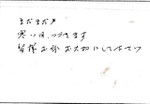 まだまだ
寒い日つづきます
皆様お体お大切にして下さい